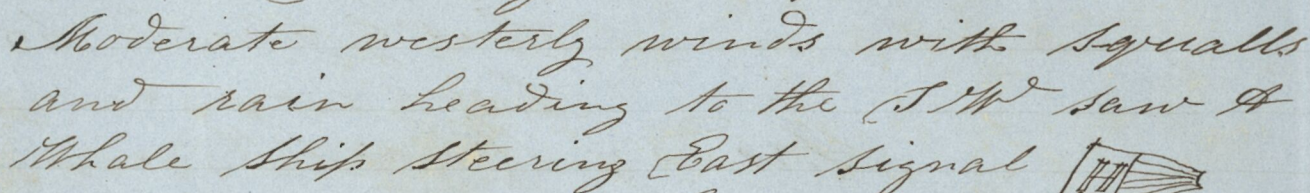 Moderate westerly winds with squalls
and rain heading to the S Wd saw A
Whale ship steering East signal H